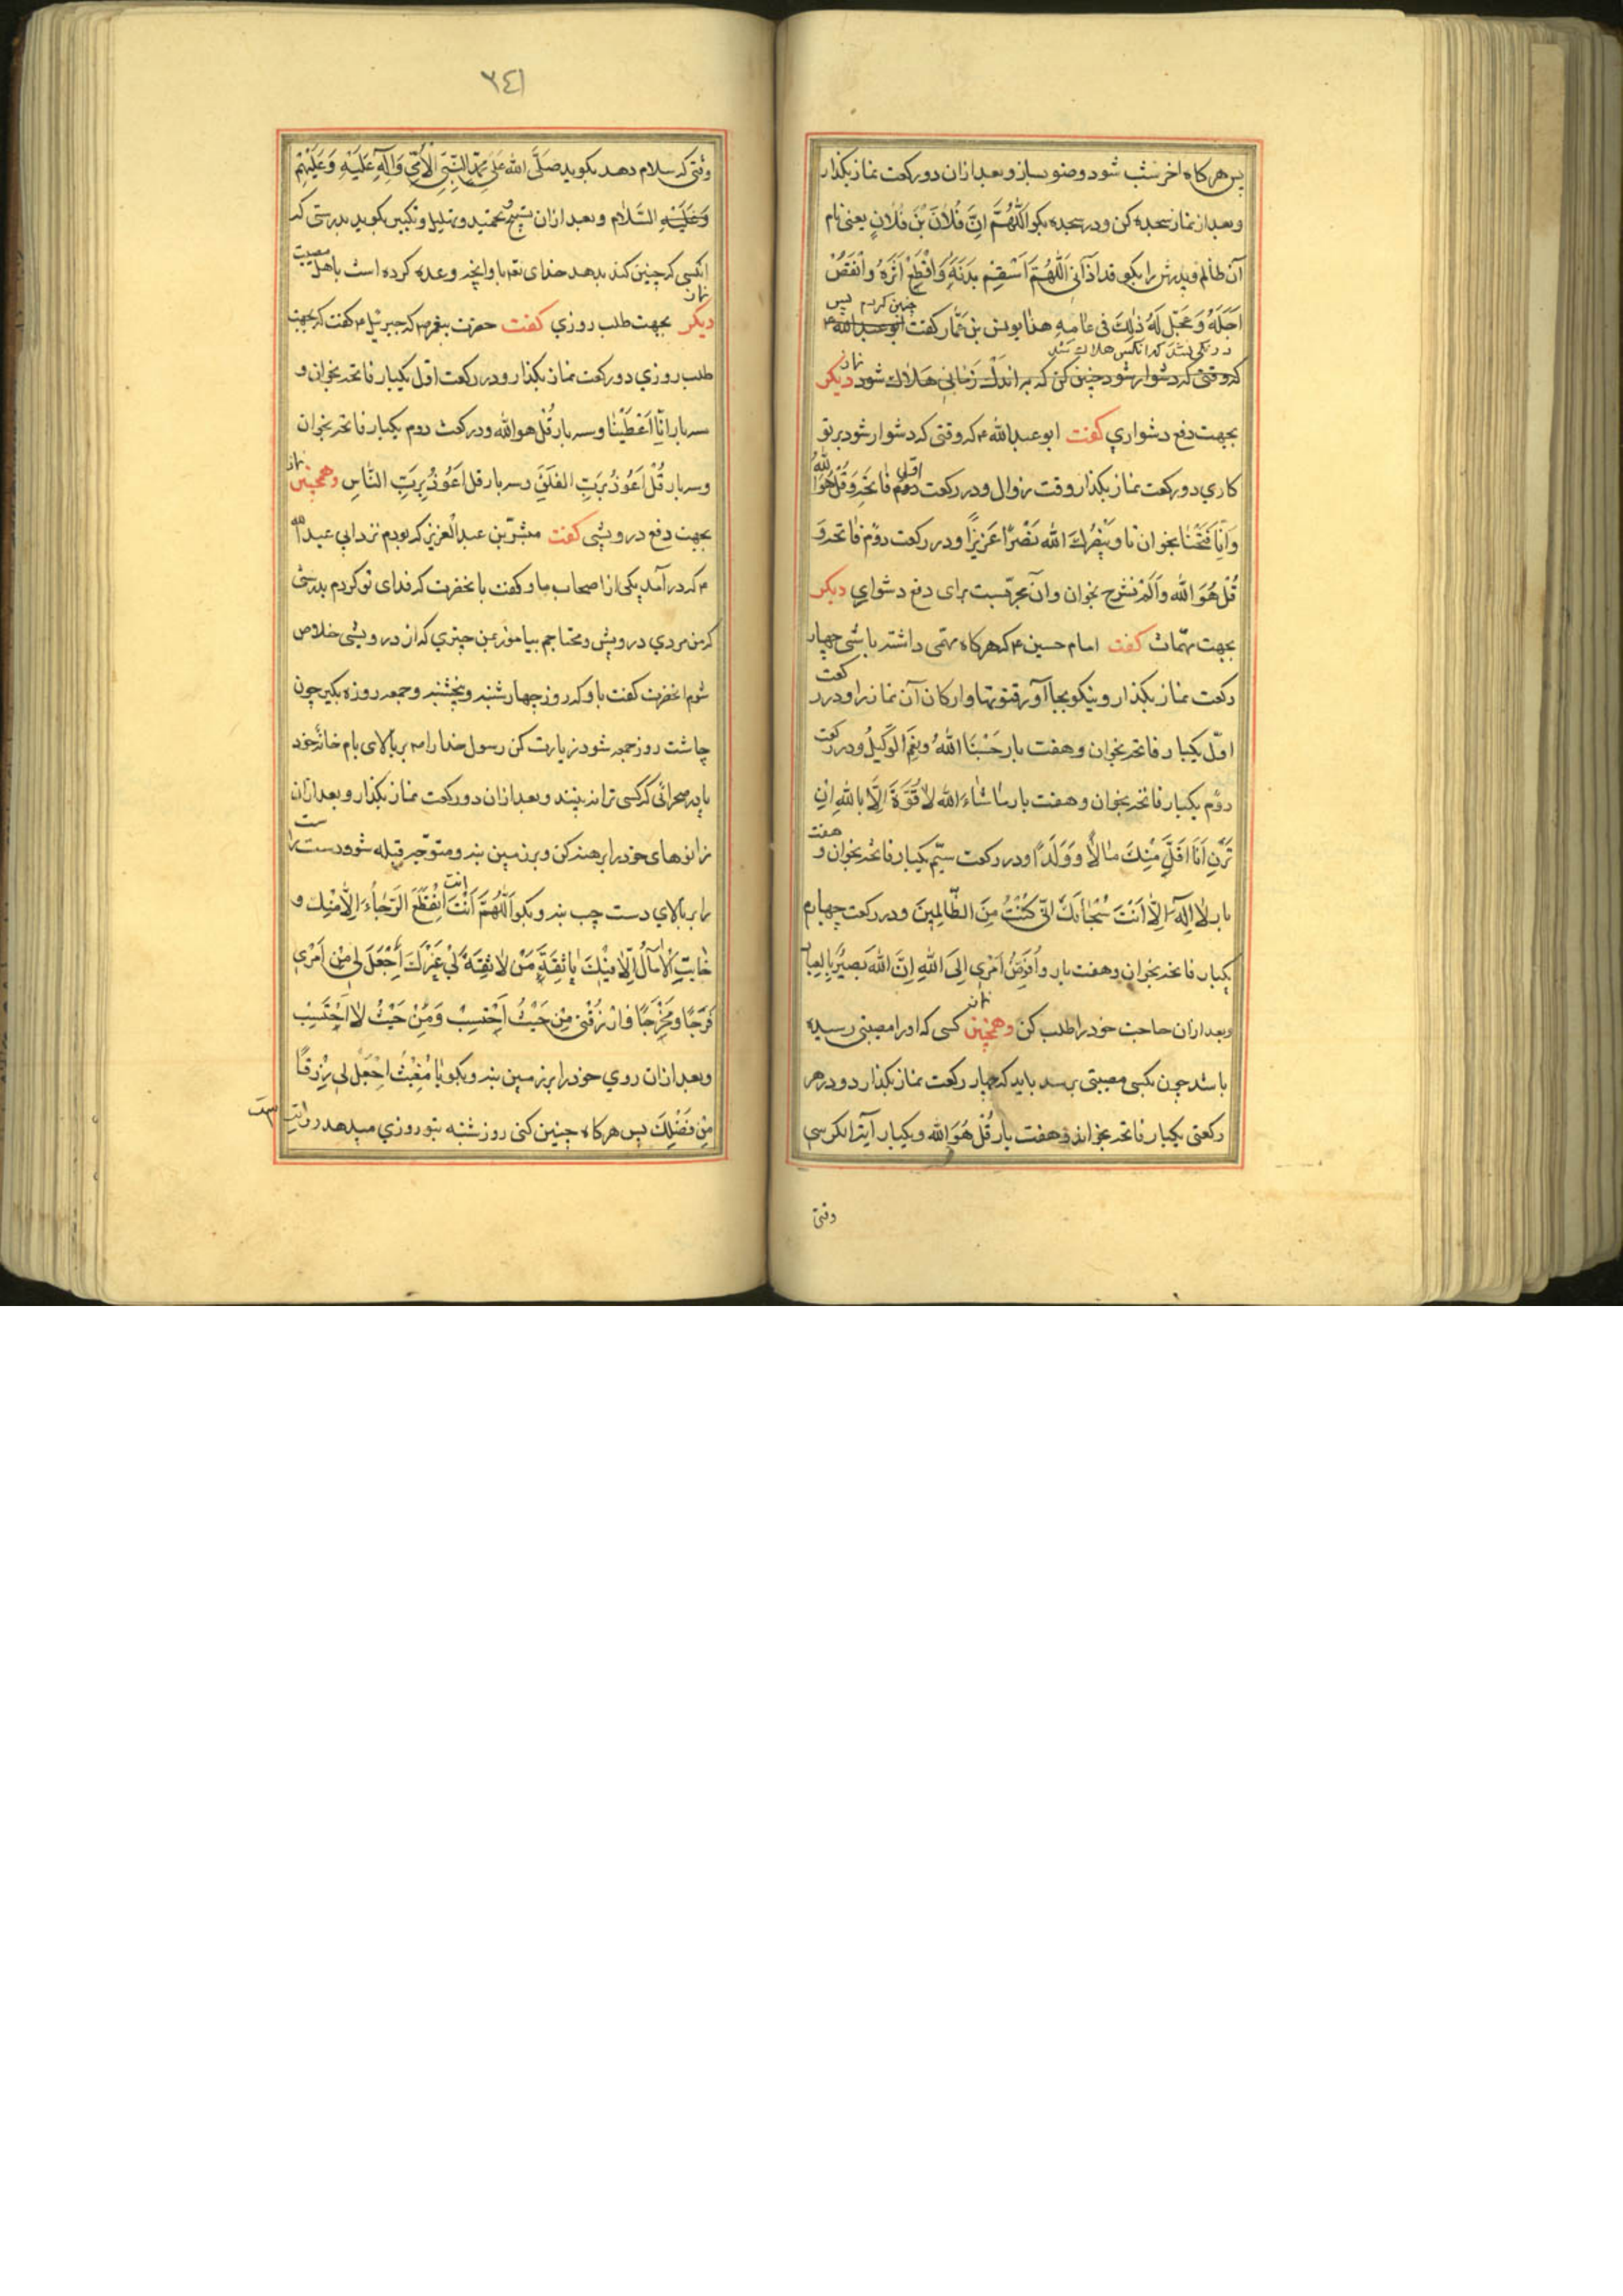 پس هرکاه اخر شب شود وضو بساز و بعد ازان دو رکعت نماز بکذار
و بعد از نماز سجده کن و در سجده بکو اَللّهُمَّ اِنَّ فُلاٰنَ بْنَ فُلاٰنٍ یعنی نام
آن ظالم و پدرش را بکو قد اذَآنِی اَللّهُمَّ اَسْقِمْ بَدَنَهُ وَاقْطَعْ اَثَرَهُ وَانْقَصْ
اَجَلَهُ وَعَجِّل لَهُ ذٰلِكَ فی عٰامِهِ هذٰا یونس بن عمّار کفت ابو عبد الله م
چنین کردم پس
که وقتی که دشوار شود چنین کن که بر اندك زمانی هلاك شود دیکر
درنکی نشد که انکس هلاك شد
نماز
بجهت دفع دشواري کفت ابو عبد الله م که وقتی که دشوار شود بر تو
کاري دو رکعت نماز بکذار وقت زوال و در رکعت دوم فاتحه وَقُلْ هُوَ
اول
الله
وَاِنّٰا فَتَحْنٰا بخوان تا وَیَنْصُرَكَ الله نَصْرًا عَزیزًا و در رکعت دوّم فاتحه وَ
قُلْ هُوَ الله وَاَلَمْ نَشْرَح بخوان و آن مجرّبست برای دفع دشواري دیکر
بجهت مهمّات کفت امام حسین م که هرکاه مهمّی داشته باشی چهار
رکعت نماز بکذار و نیکو بجا آور قنوتها و ارکان آن نماز را و در ر
کعت
اوّل یکبار فاتحه بخوان و هفت بار حَسْبُنَا اللهُ وَنِعْمَ الْوَکیلُ و در رکعت
دوّم یکبار فاتحه بخوان و هفت بار مٰا شٰاءَ الله لاٰ قُوَّةَ اِلّاٰ بِاللهِ اِنْ
تَرَنِ اَنَا اَقَلَّ مِنْكَ مٰالاً وَوَلَدًا و در رکعت سیّم یکبار فاتحه بخوان و
هفت
بار لاٰ اِلٰهَ اِلّاٰ اَنْتَ سُبْحٰانَكَ اِنّی کُنْتُ مِنَ الظّٰالِمِینَ و در رکعت چهارم
یکبار فاتحه بخوان و هفت بار وَاُفَوِّضُ اَمْری اِلَی اللهِ اِنَّ اللهَ بَصیرٌ بِالعِبٰاد
و بعد ازان حاجت خود را طلب کن وهمچنین کسی که او را مصیبتی رسیده
نماز
باشد چون بکسی مصیبتی برسد باید که چهار رکعت نماز بکذارد و در هر
رکعتی یکبار فاتحه بخواند و هفت بار قُلْ هُوَ الله و یکبار آیة الکرسی
وقتی
٣٤١
وقتی که سلام دهد بکوید صَلَّی الله عَلٰی محمّد النَّبِیِّ الْاُمِّیِّ وَآلِهِ عَلَیْهِ وَعَلَیْهِمُ
وَعَلَیْهِ السَّلاٰم و بعد ازان تسبیح و تحمید و تهلیل و تکبیر بکوید بدرستی که
انکسی که چنین کند بدهد خدای تعم باو انچه وعده کرده است باهل
مصیبت
نماز
دیکر بجهت طلب روزي کفت حضرت پیغمبر م که جبرئیل م کفت که بجهت
طلب روزي دو رکعت نماز بکذار و در رکعت اوّل یکبار فاتحه بخوان و
سه بار اِنّٰا اَعْطَیْنٰا و سه بار قُلْ هو الله و در رکعت دوم یکبار فاتحه بخوان
و سه بار قُلْ اَعُوذُ بِرَبِّ الفَلَقِ و سه بار قل اَعُوذُ بِرَبِّ النّٰاسِ وهمچنین
نماز
بجهت دفع درویشی کفت مبشّر بن عبد الْعزیز که بودم نزد ابی عبد الله
م که در آمد یکی از اصحاب ما و کفت بانحضرت که فدای تو کردم بدرستی
که من مردي درویش و محتاجم بیاموز بمن چیزي که ازان درویشی خلاص
شوم انحضرت کفت باو که روز چهارشنبه و پنجشنبه و جمعه روزه بکیر چون
چاشت روز جمعه شود زیارت کن رسول خدا را م بر بالای بام خانهٔ خود
یا در صحرائی که کسی ترا نه بیند و بعد ازان دو رکعت نماز بکذار و بعد ازان
زانوهای خود را برهنه کن و بر زمین بنه و متوجّه قبله شو و دست را
ست
را بر بالاي دست چپ بنه و بکو اَللّهُمَّ اَنْتَ انْقَطَعَ الرَّجٰاءُ اِلّاٰ مِنْك و
انت
خٰابَتِ الْاٰمٰالُ اِلّاٰ فِیْكَ یٰا ثِقَةَ مَنْ لاٰ ثِقَةَ لَهُ لاٰ ثِقَةَ لی غَیْرُكَ اِجْعَلْ لی مِنْ اَمْری
فَرَجًا وَمَخْرَجًا وَارْزُقْنی مِنْ حَیْثُ اَحْتَسِبُ وَمِنْ حَیْثُ لاٰ اَحْتَسِبُ
و بعد ازان روي خود را بر زمین بنه و بکو یٰا مُغِیْثُ اجْعَلْ لی رِزْقًا
مِنْ فَضْلِكَ پس هرکاه چنین کنی روز شنبه بتو روزي میدهد